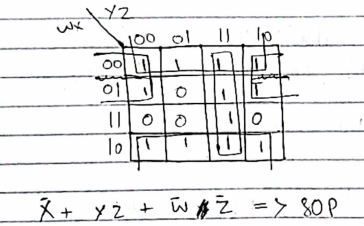 YZ
WX
00 01 11 10
00 1 1 1 1
01 1 0 1 1
11 0 0 1 0
10 1 1 1 1
X̄ + YZ + W̄ Z̄ => SOP